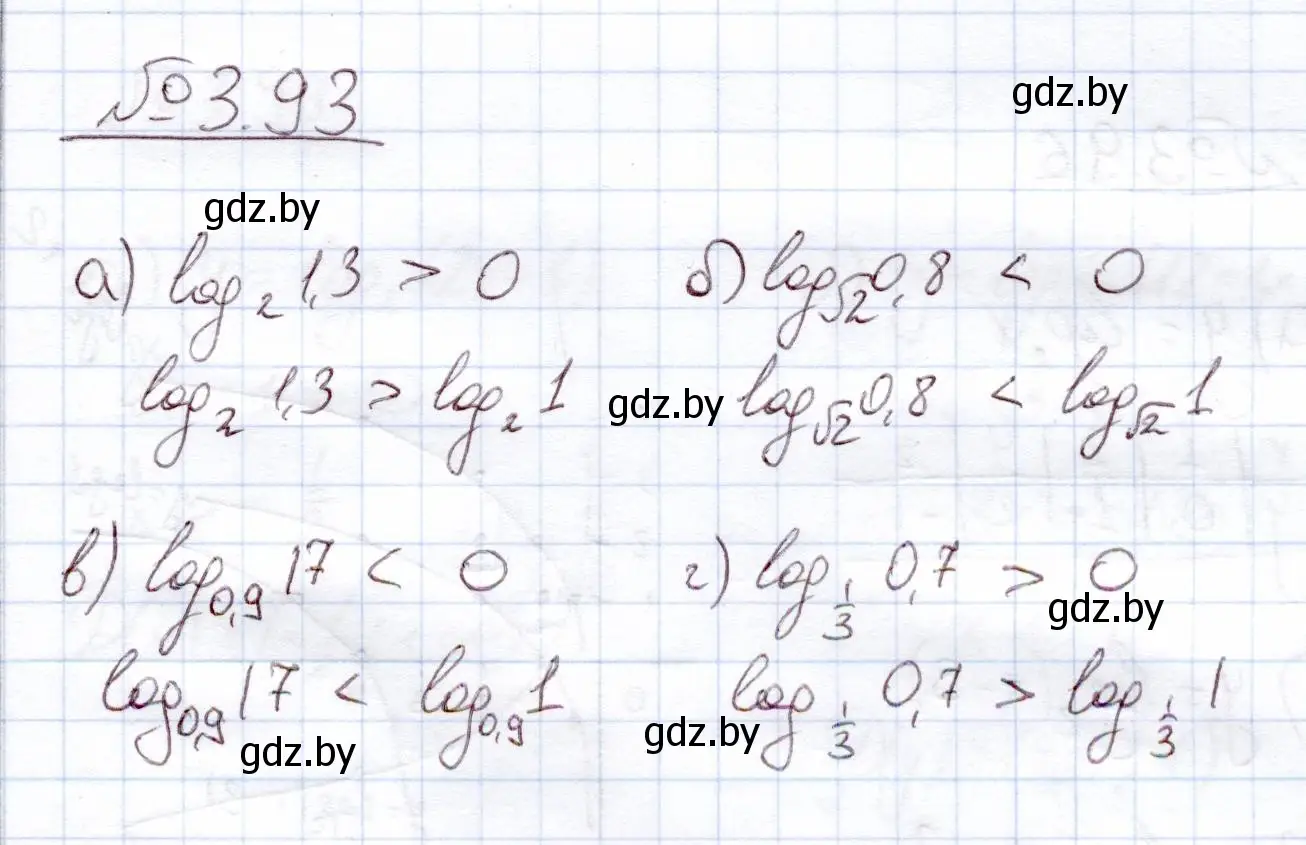 №3.93
gdz.by
gdz.by
а) log₂ 1,3 > 0
log₂ 1,3 > log₂ 1
б) log_√2 0,8 < 0
gdz.by
log_√2 0,8 < log_√2 1
в) log₀,₉ 17 < 0
log₀,₉ 17 < log₀,₉ 1
gdz.by
г) log_1/3 0,7 > 0
gdz.by
log_1/3 0,7 > log_1/3 1
gdz.by